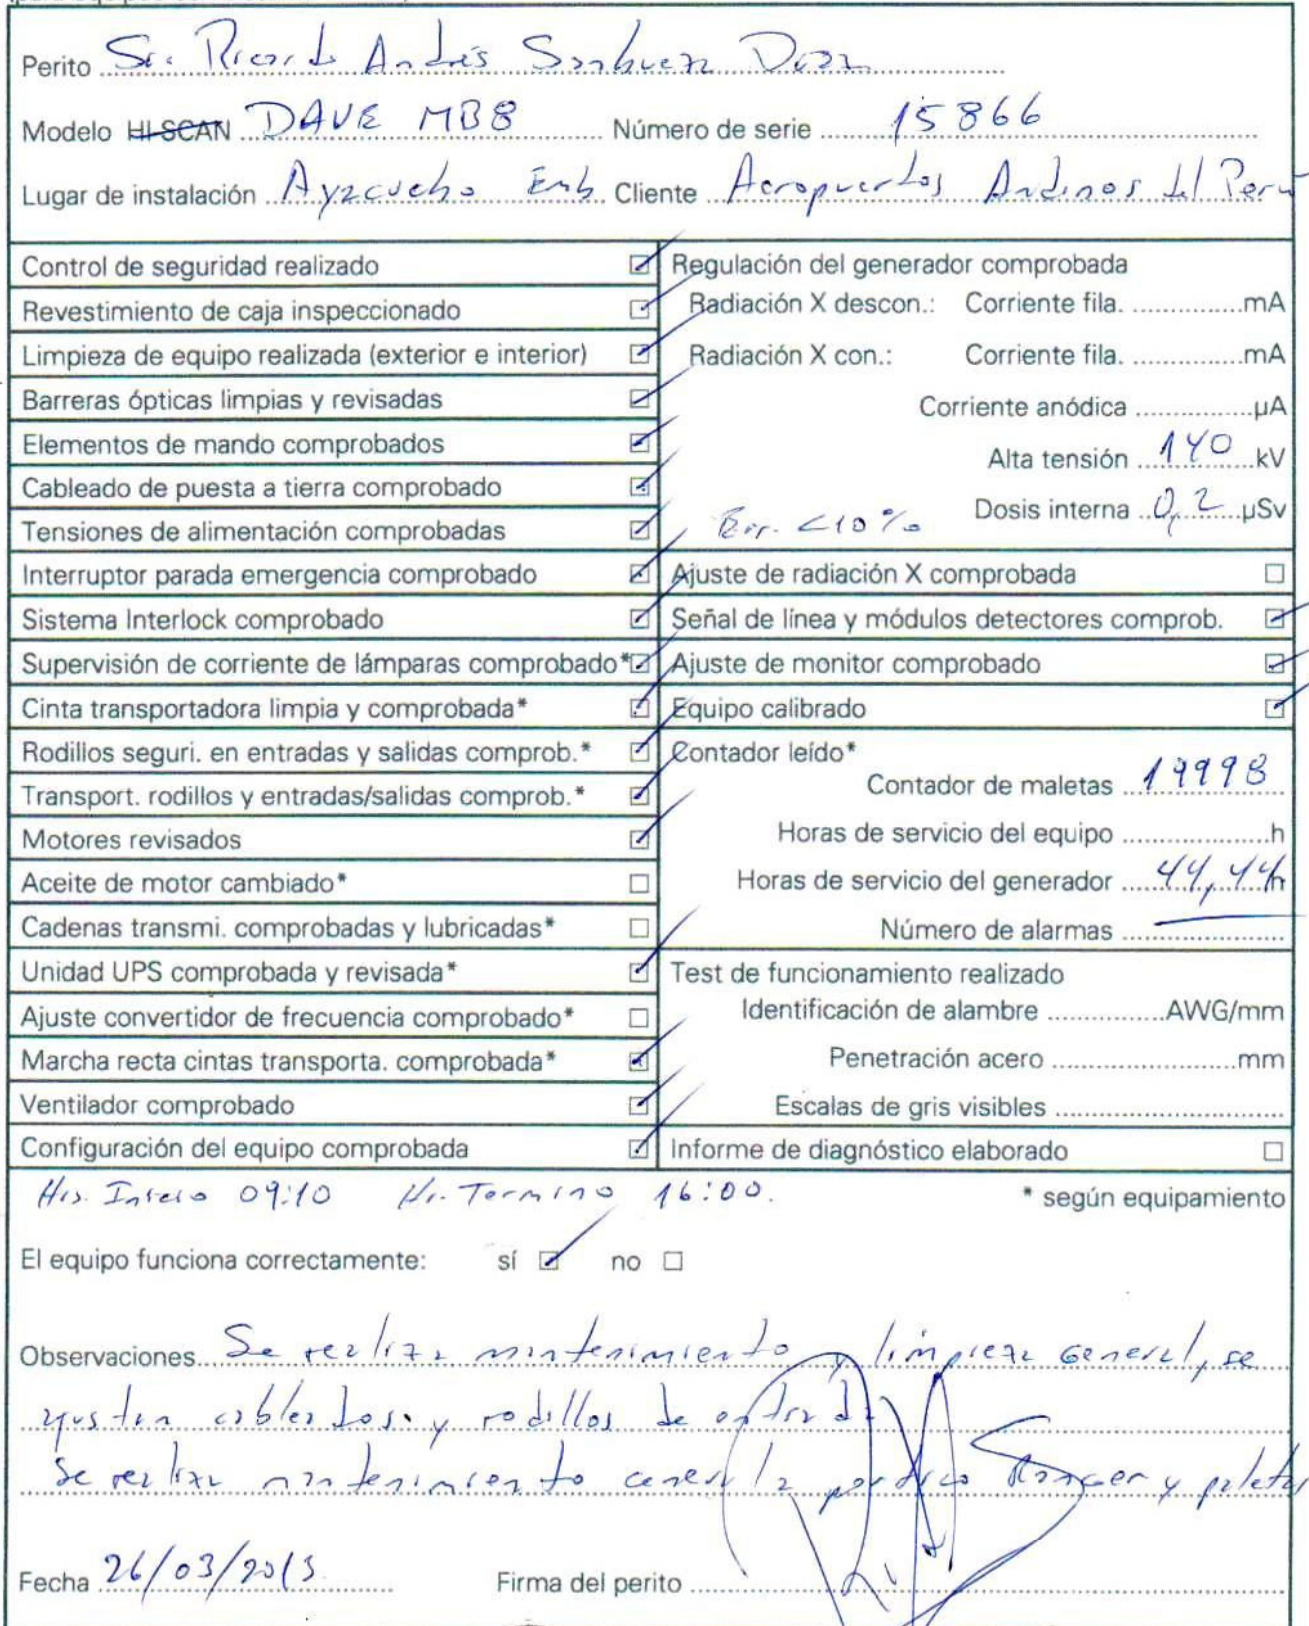 Perito Sr. Ricardo Andrés Sanhueza Daza
Modelo HI-SCAN DAVE MB8 Número de serie 15866
Lugar de instalación Ayacucho Emb. Cliente Aeropuertos Andinos del Perú
Control de seguridad realizado
Revestimiento de caja inspeccionado
Limpieza de equipo realizada (exterior e interior)
Barreras ópticas limpias y revisadas
Elementos de mando comprobados
Cableado de puesta a tierra comprobado
Tensiones de alimentación comprobadas
Interruptor parada emergencia comprobado
Sistema Interlock comprobado
Supervisión de corriente de lámparas comprobado*
Cinta transportadora limpia y comprobada*
Rodillos seguri. en entradas y salidas comprob.*
Transport. rodillos y entradas/salidas comprob.*
Motores revisados
Aceite de motor cambiado*
Cadenas transmi. comprobadas y lubricadas*
Unidad UPS comprobada y revisada*
Ajuste convertidor de frecuencia comprobado*
Marcha recta cintas transporta. comprobada*
Ventilador comprobado
Configuración del equipo comprobada
Regulación del generador comprobada
Radiación X descon.: Corriente fila. mA
Radiación X con.: Corriente fila. mA
Corriente anódica µA
Alta tensión 140 kV
Err. <10% Dosis interna 0,2 µSv
Ajuste de radiación X comprobada
Señal de línea y módulos detectores comprob.
Ajuste de monitor comprobado
Equipo calibrado
Contador leído*
Contador de maletas 19998
Horas de servicio del equipo h
Horas de servicio del generador 44,44 h
Número de alarmas
Test de funcionamiento realizado
Identificación de alambre AWG/mm
Penetración acero mm
Escalas de gris visibles
Informe de diagnóstico elaborado
Hrs. Inicio 09:10 Hr. Termino 16:00. * según equipamiento
El equipo funciona correctamente: sí no
Observaciones Se realiza mantenimiento y limpieza general, se
ajustan cableados y rodillos de entrada
Se realiza mantenimiento general a portico Ranger y paletas
Fecha 26/03/2013
Firma del perito